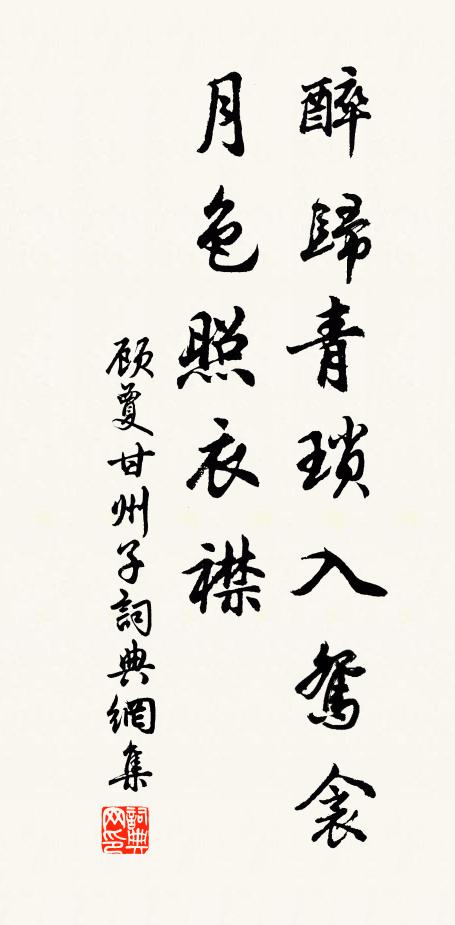 醉歸青瑣入鴛衾
月色照衣襟
顾夐甘州子詞典網集
詞典
网印